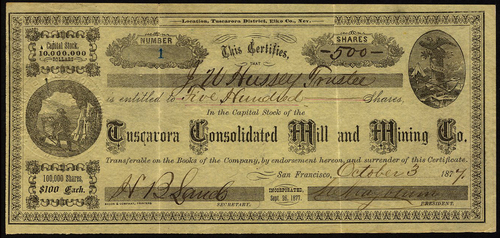 Location, Tuscarora District, Elko Co., Nev.
Capital Stock,
10,000,000
DOLLARS
NUMBER
1
This Certifies,
THAT
SHARES
-500-
J W Hussey Trustee
is entitled to Five Hundred Shares,
In the Capital Stock of the
Tuscarora Consolidated Mill and Mining Co.
Transferable on the Books of the Company, by endorsement hereon, and surrender of this Certificate.
100,000 Shares.
$100 Each.
San Francisco, October 3 1877
INCORPORATED
Sept. 26, 1877.
SECRETARY.
PRESIDENT.